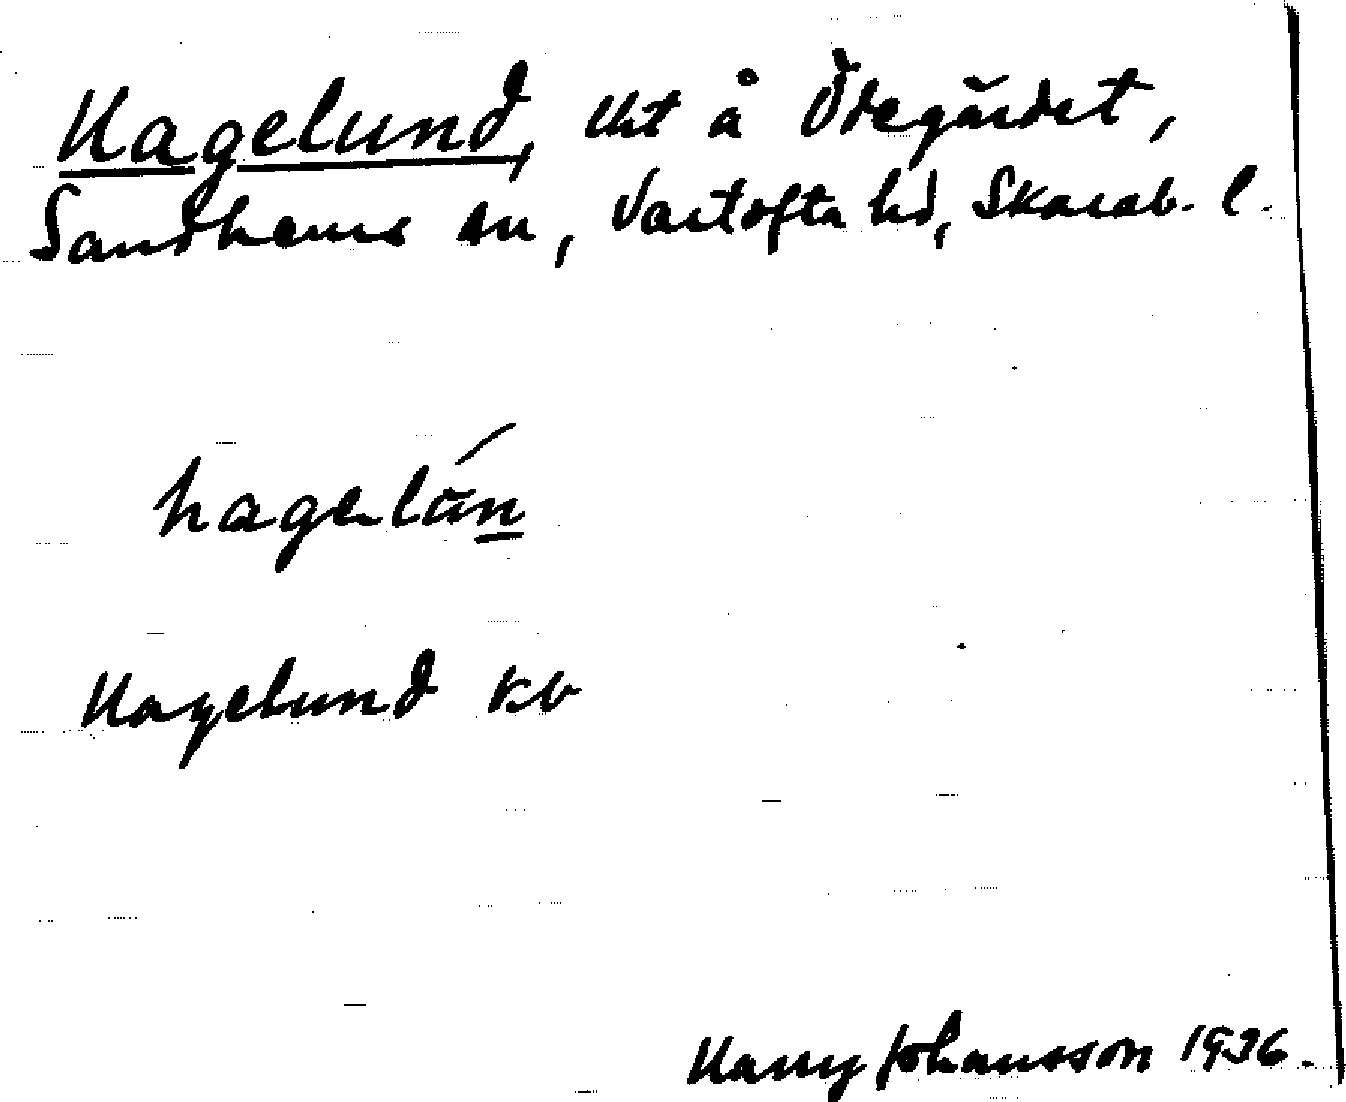 Hagelund, lht å Ödegärdet,
Sandhems sn, Vartofta hd, Skarab. l.
hagelún
Hagelund kb
Harry Johansson 1936.